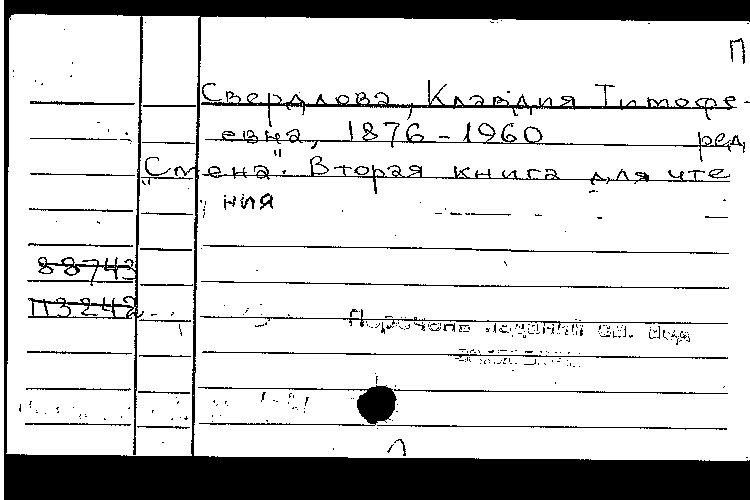 П
Свердлова, Клавдия Тимофе-
евна, 1876-1960 ред.
"Смена". Вторая книга для чте
ния
88743
П3242
Перечень изданий см. под